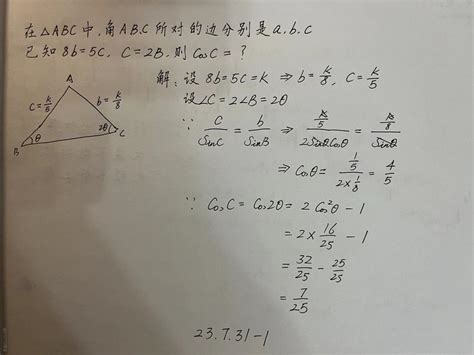 在△ABC中,角A.B.C所对的边分别是a,b,c
已知8b=5c, C=2B,则CosC=?
解:设8b=5c=K ⇒ b=K/8, c=K/5
设∠C=2∠B=2θ
A
c=K/5
b=K/8
B
θ
2θ
C
∵ c/SinC = b/SinB ⇒ (K/5)/(2SinθCosθ) = (K/8)/Sinθ
⇒ Cosθ = (1/5)/(2×1/8) = 4/5
∵ CosC = Cos2θ = 2Cos²θ - 1
= 2×16/25 - 1
= 32/25 - 25/25
= 7/25
23.7.31-1